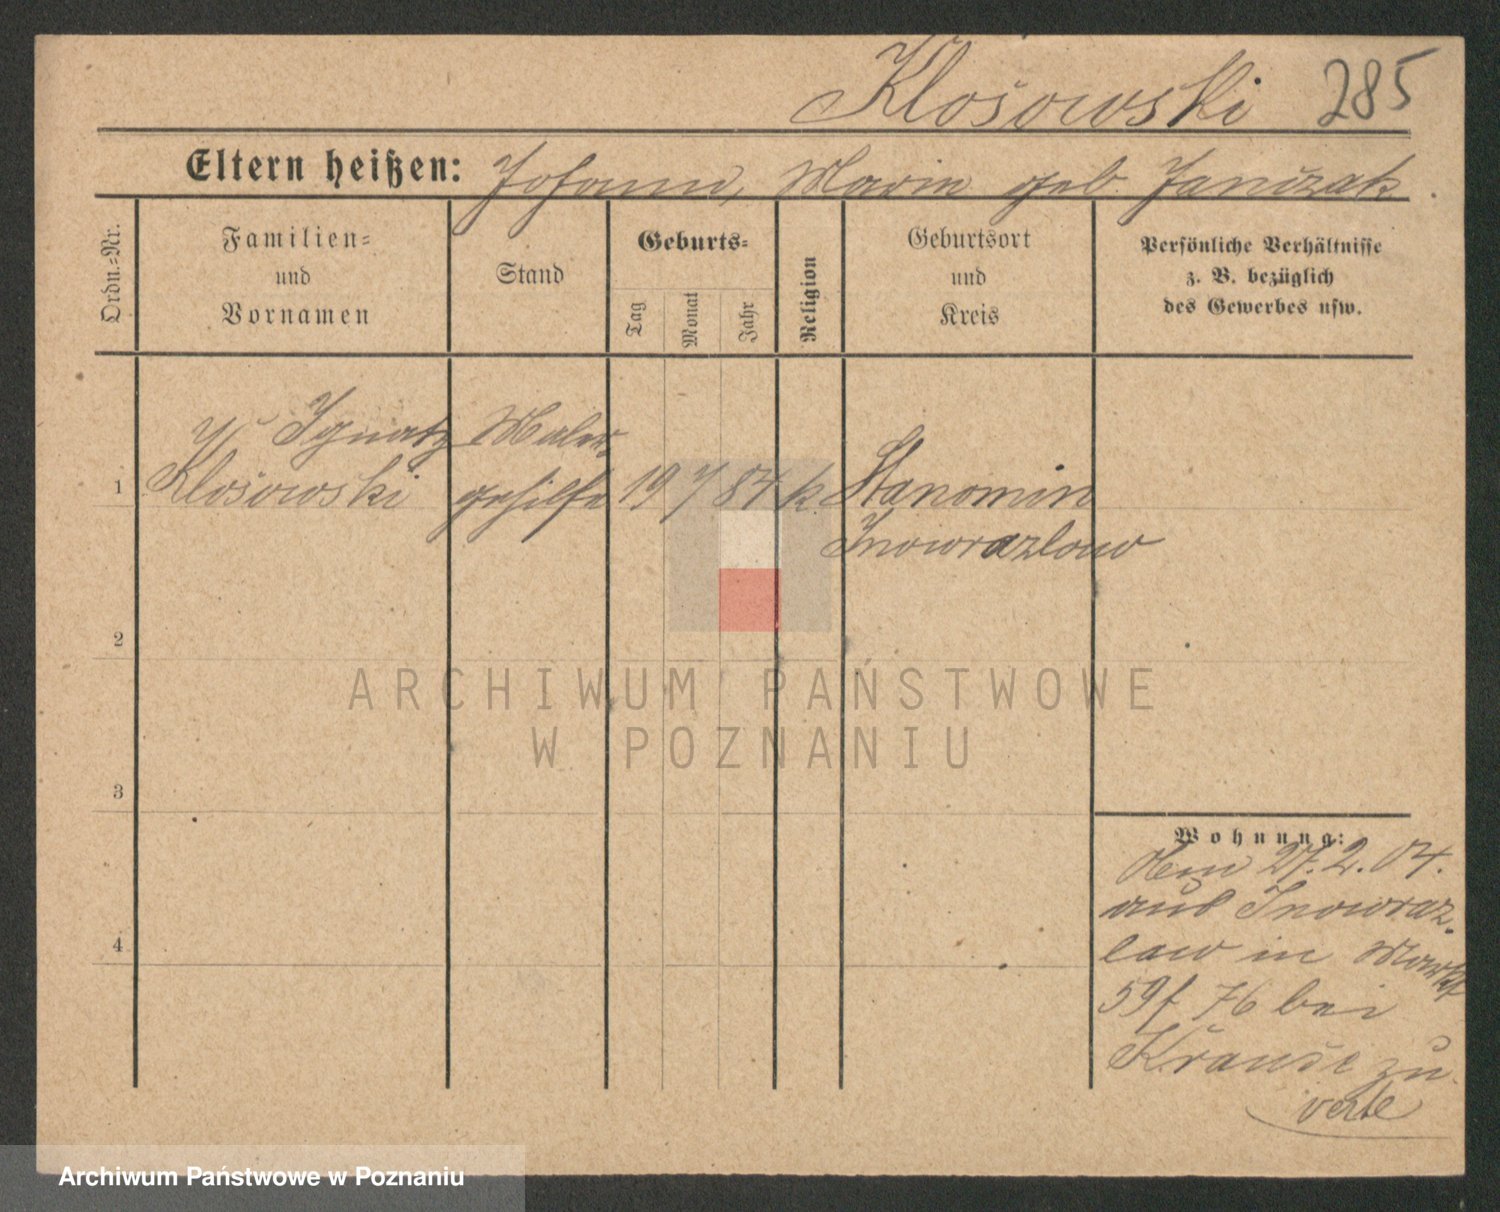 Klosowski 285
Eltern heißen: Johann, Marie geb. Janizak.
Ordn.-Nr.
Familien=
und
Vornamen
Stand
Geburts=
Tag
Monat
Jahr
Religion
Geburtsort
und
Kreis
Persönliche Verhältnisse
z. B. bezüglich
des Gewerbes usw.
Ignatz Maler-
1 Klosowski gehilfe 19 7 84 k Stanomin
Inowrazlaw
2
ARCHIWUM PAŃSTWOWE
W POZNANIU
3
Wohnung:
27.2.04.
aus Inowraz-
law in Markt
59 f 76 bei
Krause zu
verte
4
Archiwum Państwowe w Poznaniu